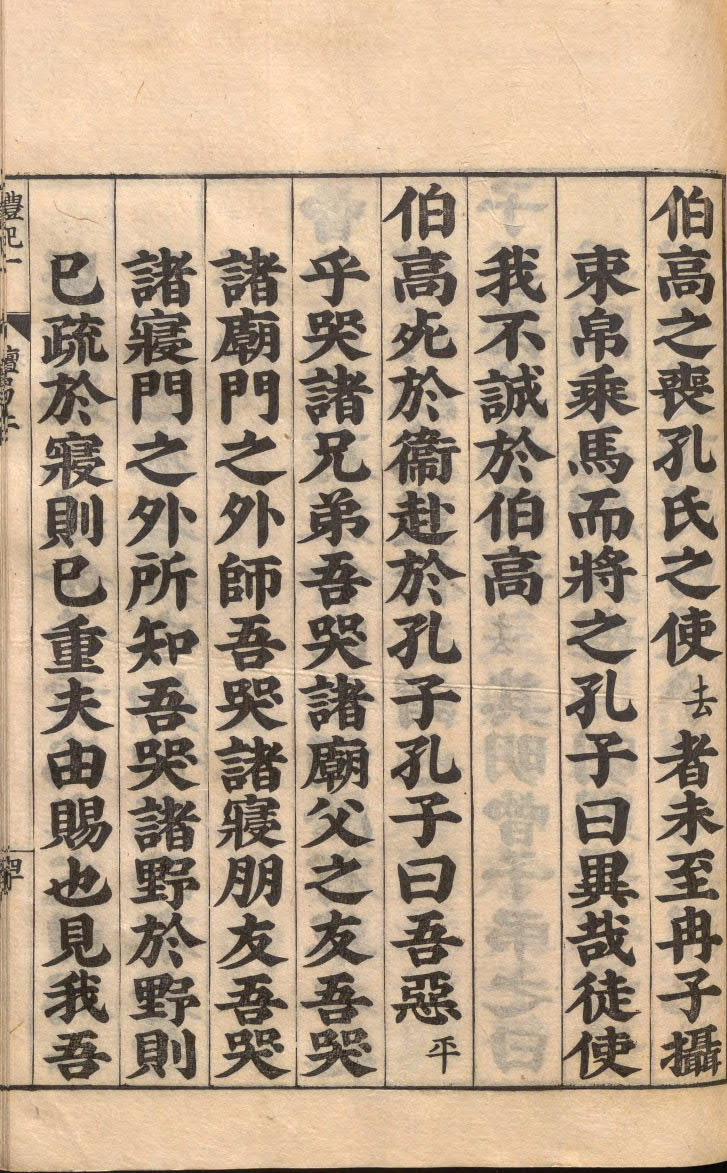 伯高之喪孔氏之使去者未至冉子攝
束帛乘馬而將之孔子曰異哉徒使
我不誠於伯高
伯高死於衞赴於孔子孔子曰吾惡平
乎哭諸兄弟吾哭諸廟父之友吾哭
諸廟門之外師吾哭諸寢朋友吾哭
諸寢門之外所知吾哭諸野於野則
已疏於寢則已重夫由賜也見我吾
禮記一